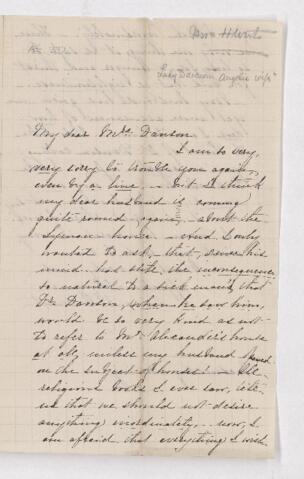 My dear Mrs. Danson
I am so very,
very sorry to trouble you again,
even by a line, - but I think
my dear husband is coming
quite round, again, about the
house. - And I only
wanted to ask, - that, since his
mind has still, the inconsequence
so natural to a sick mind, that
Dr. Danson, when he saw him,
would be so very kind as not
to refer to Mr. Alexander's house
at all, unless my husband
on the subject of houses! - All
religious books I ever saw, tell
us that we should not desire
anything inordinately, - now, I
am afraid that everything I wish